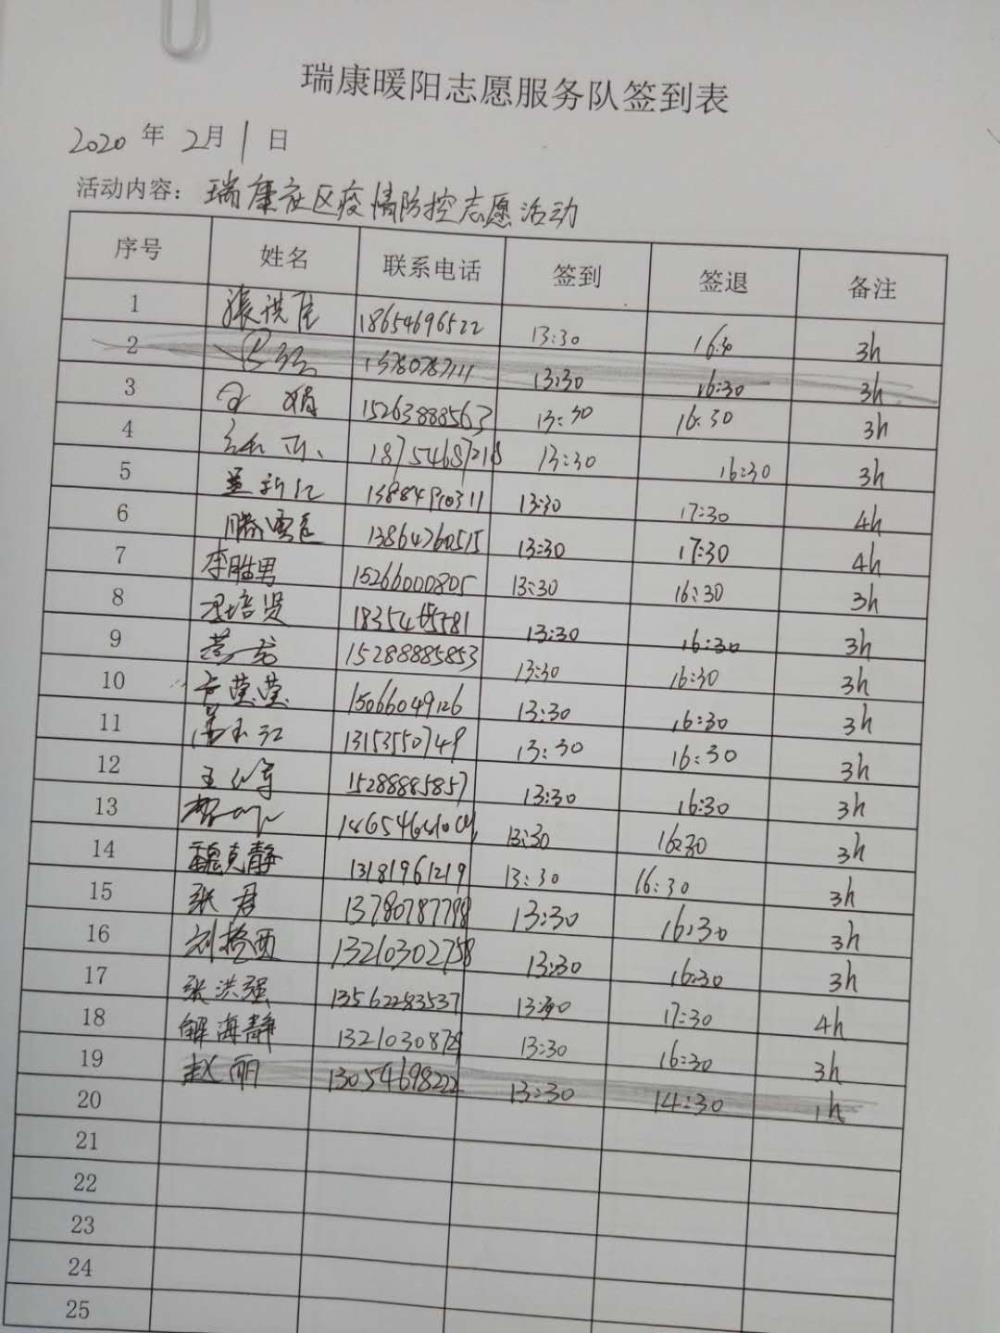 瑞康暖阳志愿服务队签到表
2020 年 2月 1 日
活动内容: 瑞康社区疫情防控志愿活动
序号 姓名 联系电话 签到 签退 备注
1 18654696522 13:30 16:30 3h
2 13780787111 13:30 16:30 3h
3 15263888563 13:30 16:30 3h
4 18754687218 13:30 16:30 3h
5 盖新红 13:30 17:30 4h
6 13864760515 13:30 17:30 4h
7 李胜男 15266000805 13:30 16:30 3h
8 13:30 16:30 3h
9 15288885853 13:30 16:30 3h
10 卞莹莹 15066049126 13:30 16:30 3h
11 13153550749 13:30 16:30 3h
12 15288885857 13:30 16:30 3h
13 13:30 16:30 3h
14 魏克静 13181961219 13:30 16:30 3h
15 张君 13780787798 13:30 16:30 3h
16 13210302758 13:30 16:30 3h
17 张洪强 13562283537 13:30 17:30 4h
18 解海静 13:30 16:30 3h
19 赵丽 13054698222 13:30 14:30 1h
20
21
22
23
24
25